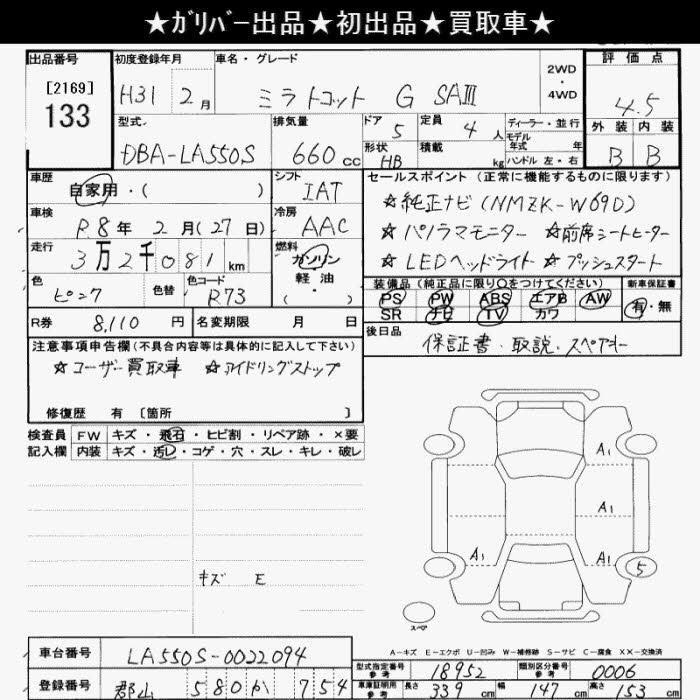 ★ｶﾞﾘﾊﾞｰ出品★初出品★買取車★
出品番号
[2169]
133
初度登録年月
H31 2月
車名・グレード
ミラトコット G SAⅢ
2WD
・
4WD
評価点
4.5
外装 内装
B B
型式
DBA-LA550S
排気量
660cc
ドア 5
定員 4人
ディーラー・並行
モデル
年式 年
形状
HB
積載 kg
ハンドル 左・右
車歴
自家用・( )
シフト
IAT
車検
R.8年 2月(27日)
冷房
AAC
走行
3万2千081km
燃料
ガソリン
軽油
( ・ )
色
ピンク
色替
色コード
R73
R券 8,110円
名変期限 月 日
セールスポイント (正常に機能するものに限ります)
☆純正ナビ(NMZK-W69D)
☆パノラマモニター ☆前席シートヒーター
☆LEDヘッドライト ☆プッシュスタート
装備品(純正品に限り○をつけてください)
新車保証書
PS PW ABS エアB AW
SR ナビ TV カワ
有・無
後日品
保証書・取説・スペアキー
注意事項申告欄(不具合内容等は具体的に記入して下さい)
☆ユーザー買取車 ☆アイドリングストップ
修復歴 有 [箇所 ]
検査員 FW キズ・飛石・ヒビ割・リペア跡・×要
記入欄 内装 キズ・汚レ・コゲ・穴・スレ・キレ・破レ
キズ E
A1
A1
A1 A1
5
スペア
A－キズ E－エクボ U－凹み W－補修跡 S－サビ C－腐食 XX－交換済
車台番号 LA550S-0022094
登録番号 郡山 580 か 754
型式指定番号
参考
18952
類別区分番号
参考
0006
車庫証明用
参考
長さ 339cm 幅 147cm 高さ 153cm